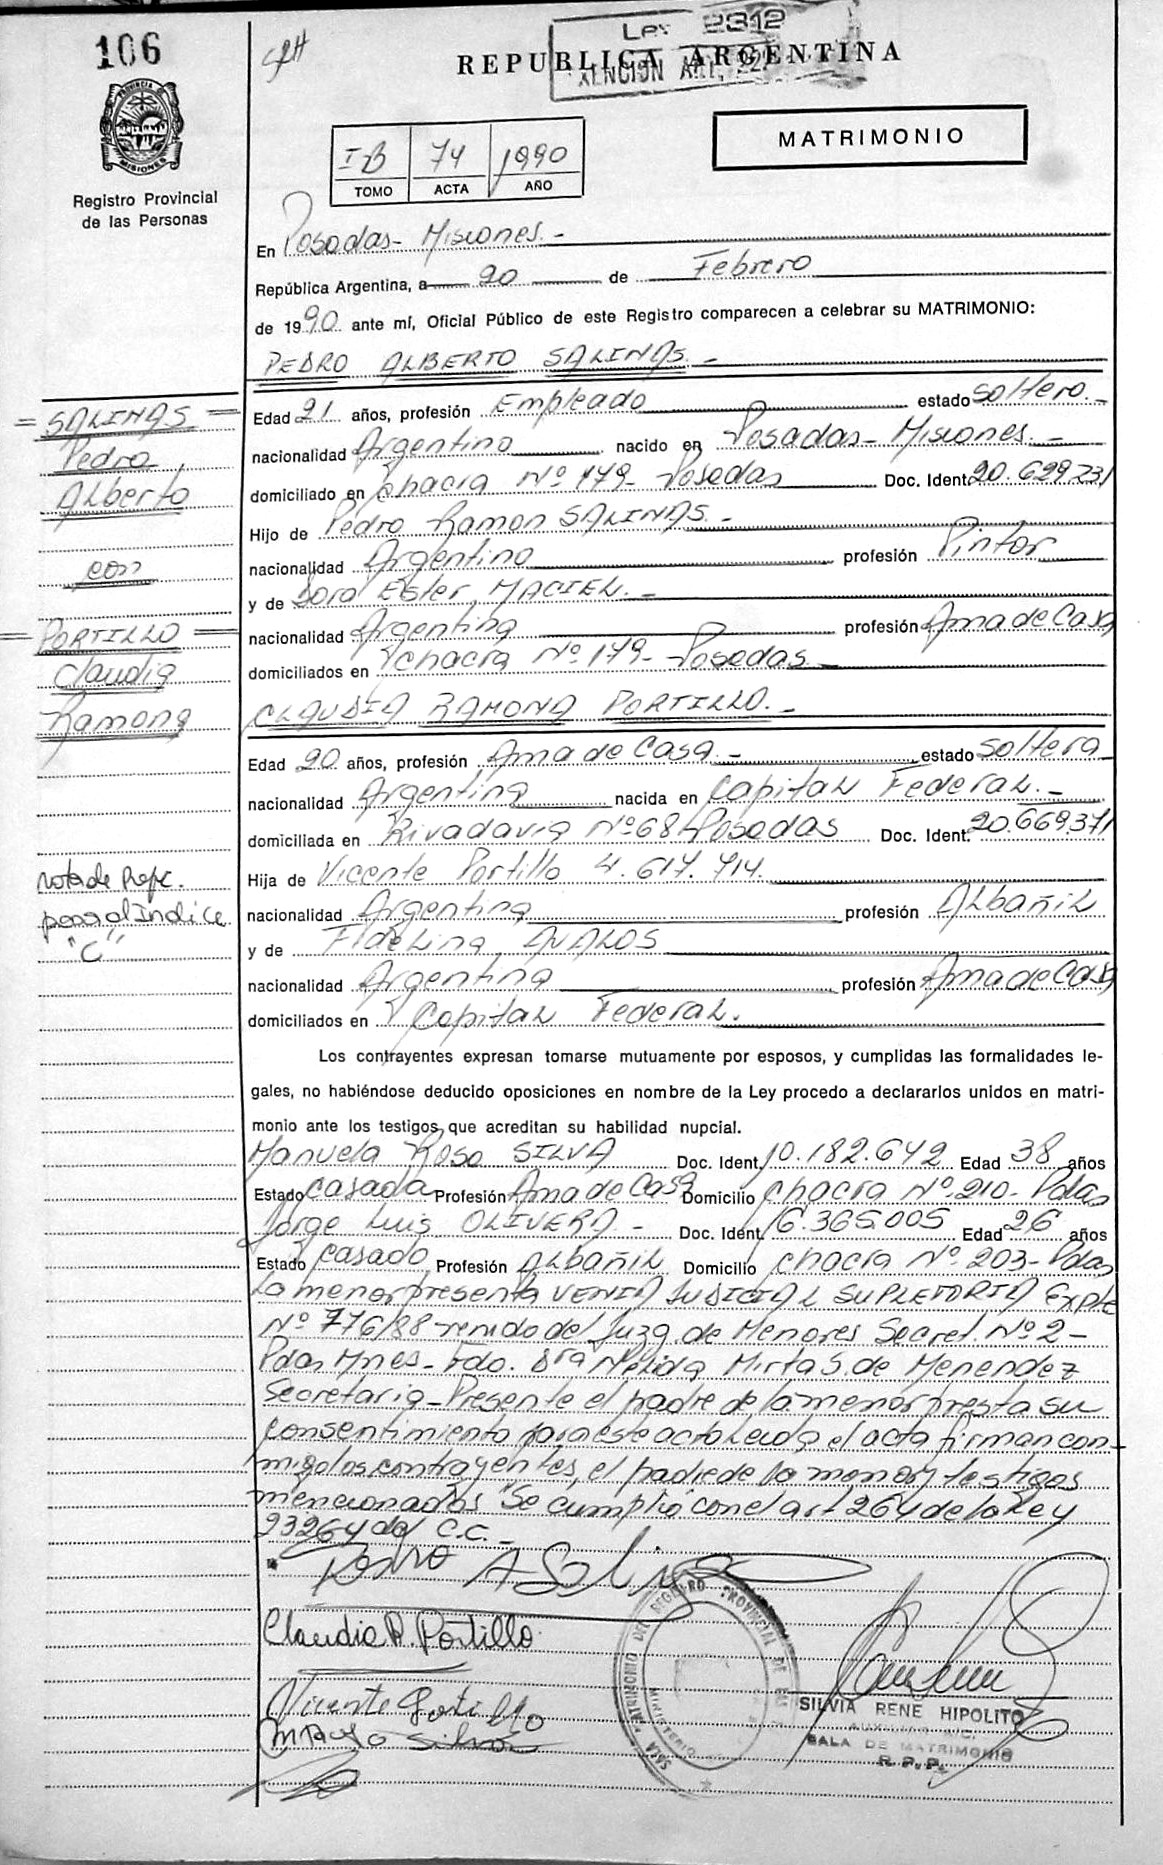 106
Ley 2312
REPUBLICA ARGENTINA
MATRIMONIO
I B 74 1990
TOMO ACTA AÑO
PROVINCIA DE MISIONES
Registro Provincial
de las Personas
En Posadas - Misiones. -
República Argentina, a 20 de Febrero
de 1990 ante mí, Oficial Público de este Registro comparecen a celebrar su MATRIMONIO:
PEDRO ALBERTO SALINAS. -
= SALINAS =
Pedro
Alberto
con
= PORTILLO =
Claudia
Ramona
Edad 21 años, profesión Empleado estado soltero. -
nacionalidad Argentino nacido en Posadas - Misiones. -
domiciliado en chacra Nº 179 - Posadas Doc. Ident. 20.629.231
Hijo de Pedro Ramon SALINAS. -
nacionalidad Argentino profesión Pintor
y de Dora Ester MACIEL. -
nacionalidad Argentina profesión Ama de Casa
domiciliados en chacra Nº 179 - Posadas. -
CLAUDIA RAMONA PORTILLO. -
Edad 20 años, profesión Ama de Casa. - estado soltera
nacionalidad Argentina nacida en Capital Federal. -
domiciliada en Rivadavia Nº 68 Posadas Doc. Ident. 20.669.371
Hija de Vicente Portillo 4.617.714.
nacionalidad Argentina profesión Albañil
y de Fidelina AVALOS
nacionalidad Argentina profesión Ama de Casa
domiciliados en Capital Federal.
nota de Refe.
pasa al Indice
"C"
Los contrayentes expresan tomarse mutuamente por esposos, y cumplidas las formalidades le-
gales, no habiéndose deducido oposiciones en nombre de la Ley procedo a declararlos unidos en matri-
monio ante los testigos que acreditan su habilidad nupcial.
Manuela Rosa SILVA Doc. Ident. 10.182.642 Edad 38 años
Estado casada Profesión Ama de Casa Domicilio chacra Nº 210 - Pdas
Jorge Luis OLIVERA - Doc. Ident. 16.365.005 Edad 26 años
Estado casado Profesión Albañil Domicilio chacra Nº 203 - Pdas
La menor presenta VENIA JUDICIAL SUPLETORIA Expte
Nº 776/88 venido del Juzg. de Menores Secret. Nº 2 -
Pdas Mnes - Fdo. Dra Nelida Mirta S. de Menendez
Secretaria - Presente el padre de la menor presta su
consentimiento para este acto Leida el acta firman con-
migo los contrayentes, el padre de la menor y testigos
mencionados "Se cumplió con el art 264 de la Ley
23264 del C.C. -
Pedro A Salinas
Claudia R. Portillo
Vicente Portillo
SALA MATRIMONIO DEL REGISTRO PROVINCIAL DE LAS
MINISTERIO
SILVIA RENE HIPOLITO
AUXILIAR
SALA DE MATRIMONIO
R. P. P.